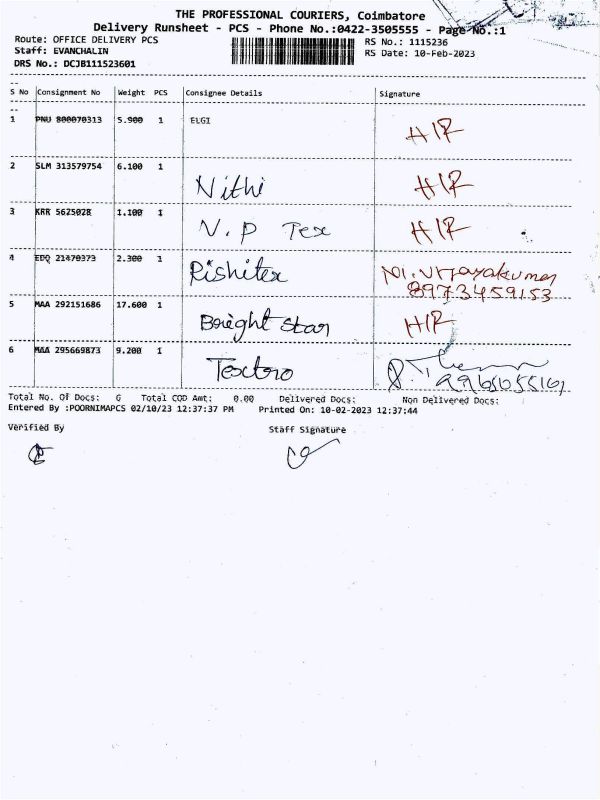 THE PROFESSIONAL COURIERS, Coimbatore
Delivery Runsheet - PCS - Phone No.:0422-3505555 - Page No.:1
Route: OFFICE DELIVERY PCS
RS No.: 1115236
Staff: EVANCHALIN
RS Date: 10-Feb-2023
DRS No.: DCJB111523601
S No Consignment No Weight PCS Consignee Details Signature
1 PNU 800070313 5.900 1 ELGI H/R
2 SLM 313579754 6.100 1 Nithi H/R
3 KRR 5625028 1.100 1 V.P Tex H/R
4 EDQ 21470373 2.300 1 Rishitex M.Vijayakumar
8973459153
5 MAA 292151686 17.600 1 Bright Star H/R
6 MAA 295669873 9.200 1 Textro
Total No. Of Docs: 6 Total COD Amt: 0.00 Delivered Docs: Non Delivered Docs:
Entered By :POORNIMAPCS 02/10/23 12:37:37 PM Printed On: 10-02-2023 12:37:44
Verified By Staff Signature